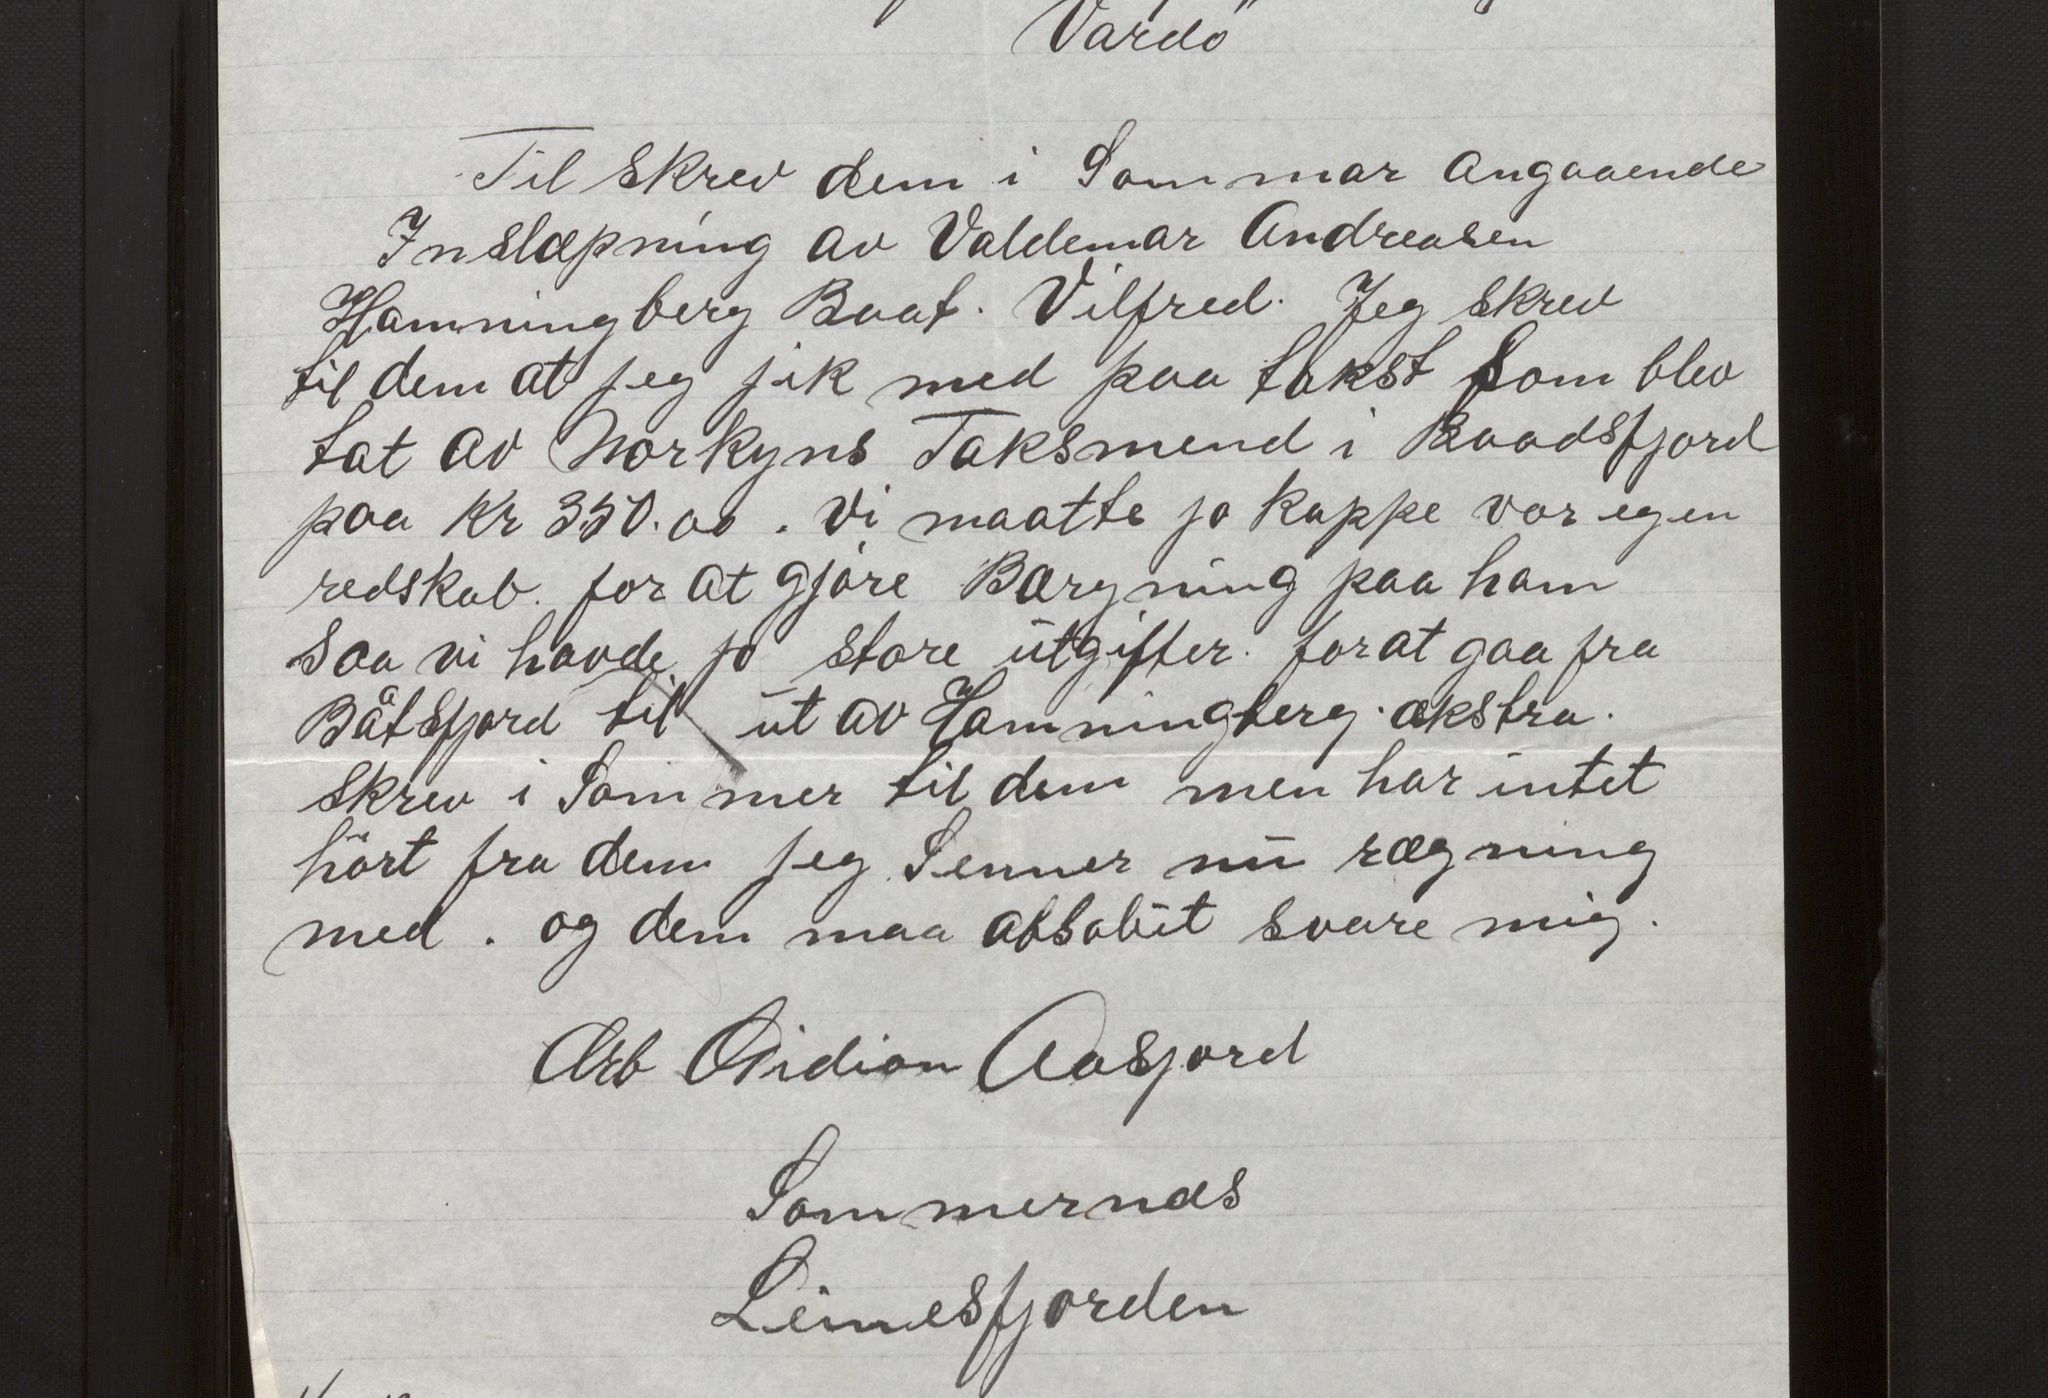 Vardö
Til skrev dem i Sommar angaaende
Inslæpning av Valdemar Andreasen
Hamningberg Baat. Vilfred. Jeg skrev
til dem at jeg jik med paa takst som blev
tat av Norkyns Taksmend i Baadsfjord
paa Kr 350.00. Vi maatte jo kappe vor egen
redskab. for at gjøre Bærgning paa ham
saa vi havde jo store utgifter. for at gaa fra
Båtsfjord til ut av Hamningberg. ækstra.
skrev i Sommer til dem men har intet
hört fra dem jeg Senner nu rægning
med. og dem maa absolut svare mig.
Arb Aasjord
Sommernæs